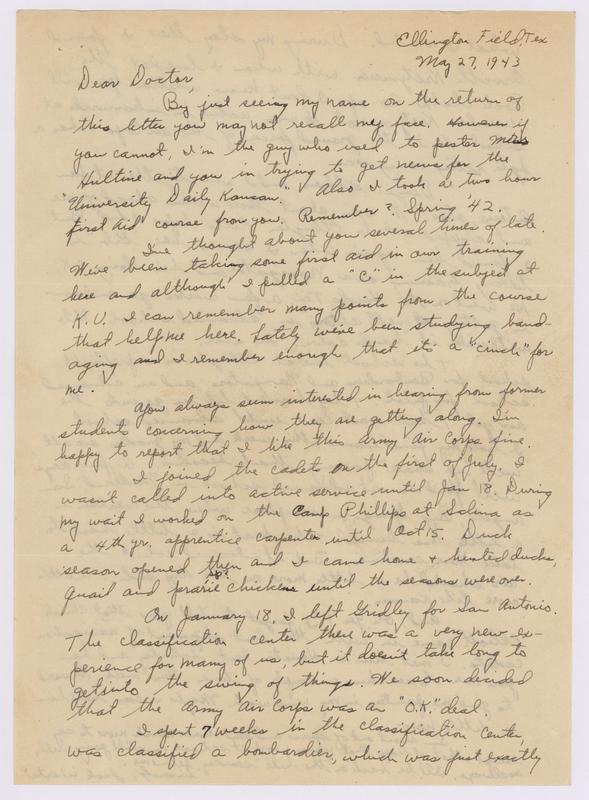 Ellington Field, Tex
May 27, 1943
Dear Doctor,
By just seeing my name on the return of
this letter you may not recall my face. However if
you cannot, I'm the guy who used to pester Miss
Hultine and you in trying to get news for the
"University Daily Kansan." Also I took a two hour
first aid course from you. Remember? Spring '42.
I've thought about you several times of late.
We've been taking some first aid in our training
here and although I pulled a "C" in the subject at
K.U. I can remember many points from the course
that help me here. Lately we've been studying band-
aging and I remember enough that its a "cinch" for
me.
You always seem interested in hearing from former
students concerning how they are getting along. I'm
happy to report that I like this Army Air Corps fine.
I joined the cadets on the first of July. I
wasn't called into active service until Jan 18. During
my wait I worked on the Camp Phillips at Salina as
a 4th yr. apprentice carpenter until Oct 15. Duck
season opened then and I came home & hunted ducks,
quail and prarie sp? chickens until the seasons were over.
On January 18, I left Gridley for San Antonio.
The classification center there was a very new ex-
perience for many of us, but it doesn't take long to
get into the swing of things. We soon decided
that the Army Air Corps was an "O.K." deal.
I spent 7 weeks in the classification center,
was classified a bombardier, which was just exactly